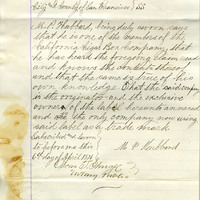 City and County of San Francisco } SS
M. P. Hubbard, being duly sworn says
that he is one of the members of the
California Company, that
he has heard the foregoing claim read
and knows the contents thereof
and that the same is true of his
own knowledge that the said company
is the originator and the exclusive
owner of the label hereunto annexed
and the only company now using
said label as a trade mark
Subscribed and sworn
to before me this M. P. Hubbard
6th day of April 1871
Notary Public